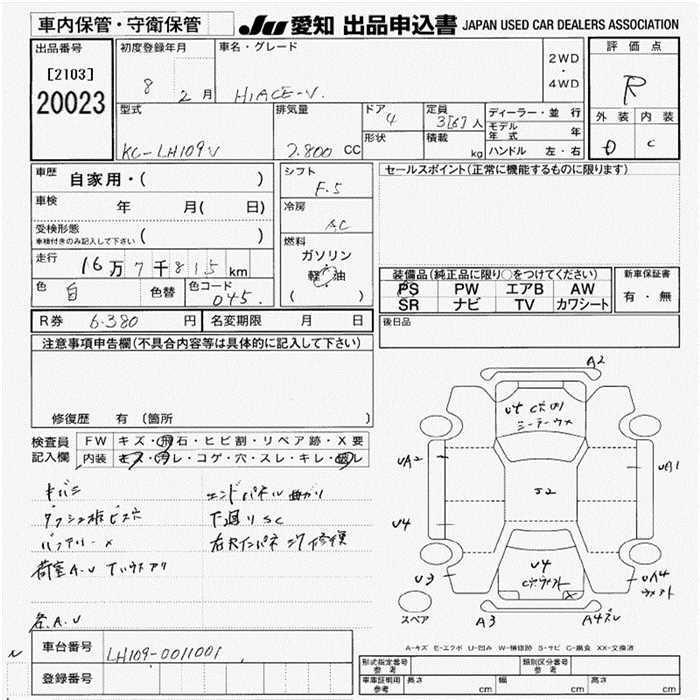 車内保管・守衛保管
JU 愛知 出品申込書 JAPAN USED CAR DEALERS ASSOCIATION
出品番号
[2103]
20023
初度登録年月
8 2 月
車名・グレード
HIACE-V.
2WD
・
4WD
評価点
R
外装 内装
D C
型式
KC-LH109V
排気量
2.800 CC
ドア
4
形状
定員
3[6]人
積載
kg
ディーラー・並行
モデル年式 年
ハンドル 左・右
車歴
自家用・( )
車検
年 月( 日)
受検形態
車検付きのみ記入して下さい ( )
走行
16万7千815km
色
白
色替
色コード
045.
シフト
F.5
冷房
AC
燃料
ガソリン
・
軽 油
( )
R券 6.380 円
名変期限 月 日
セールスポイント(正常に機能するものに限ります)
装備品(純正品に限り○をつけてください)
PS PW エアB AW
SR ナビ TV カワシート
新車保証書
有・無
後日品
注意事項申告欄(不具合内容等は具体的に記入して下さい)
修復歴 有 (箇所 )
検査員
記入欄
FW キズ・飛石・ヒビ割・リペア跡・X要
内装 キズ・汚レ・コゲ・穴・スレ・キレ・劣レ
キバミ
ダッシュ板ビス穴
バッテリー×
荷室A.U
各A.U
エンドパネル曲がり
下廻りSC
A2
UA2
U4
U3
J2
U4
UA1
UA4
A3
スペア
A-キズ E-エクボ U-凹み W-補修跡 S-サビ C-腐食 XX-交換済
N
車台番号
LH109-0011001
登録番号
形式指定番号
参考
類別区分番号
参考
車庫証明用
参考
長さ cm
幅 cm
高さ cm